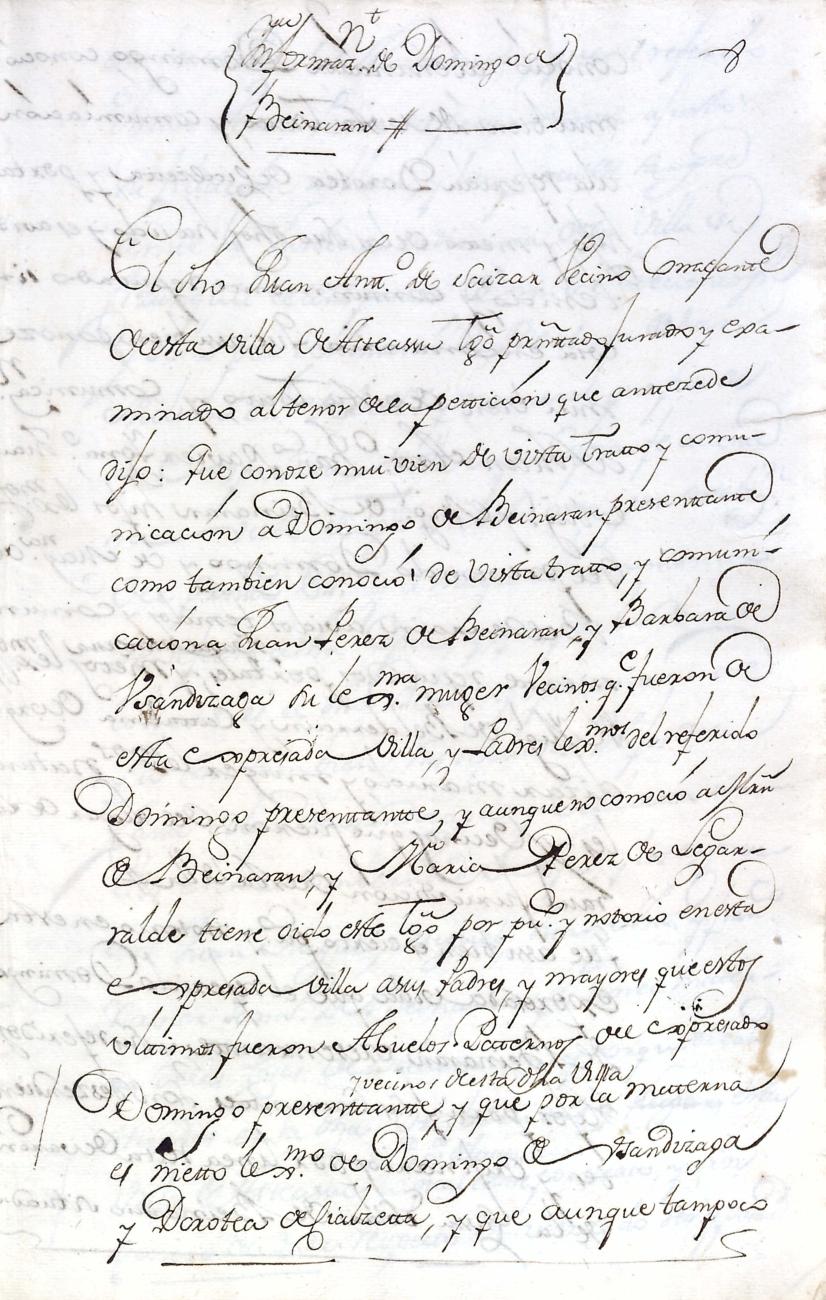 Nt
Informaz.on de Domingo de
Beinaran #
8
El dho Juan Antt.o de Saizar Vecino Conczante
de esta Villa de Asteasu tgo prnttado jurado y exa-
minado al tenor de la pettición que anttezede
dijo: que conoze mui vien de vista tratto y comu-
nicación a Domingo de Beinaran presenttantte
como tambien conoció de vista tratto, y comuni-
cación a Juan Perez de Beinaran, y Barbara de
Usandizaga su lex.ma muger Vecinos q.e fueron de
esta expresada Villa, y Padres lex.mos del referido
Domingo presenttantte, y aunque no conoció a
de Beinaran, y Maria Perez de Legar-
ralde tiene oido este tgo por pu.co y notorio en esta
expresada Villa a sus Padres, y mayores que estos
ulttimos fueron Abuelos Patternos del expresado
y vecinos de esta dha Villa
Domingo presenttantte, y que por la matterna
es nietto lex.mo de Domingo de Usandizaga
y Dorotea de Sialzetta, y que aunque tampoco